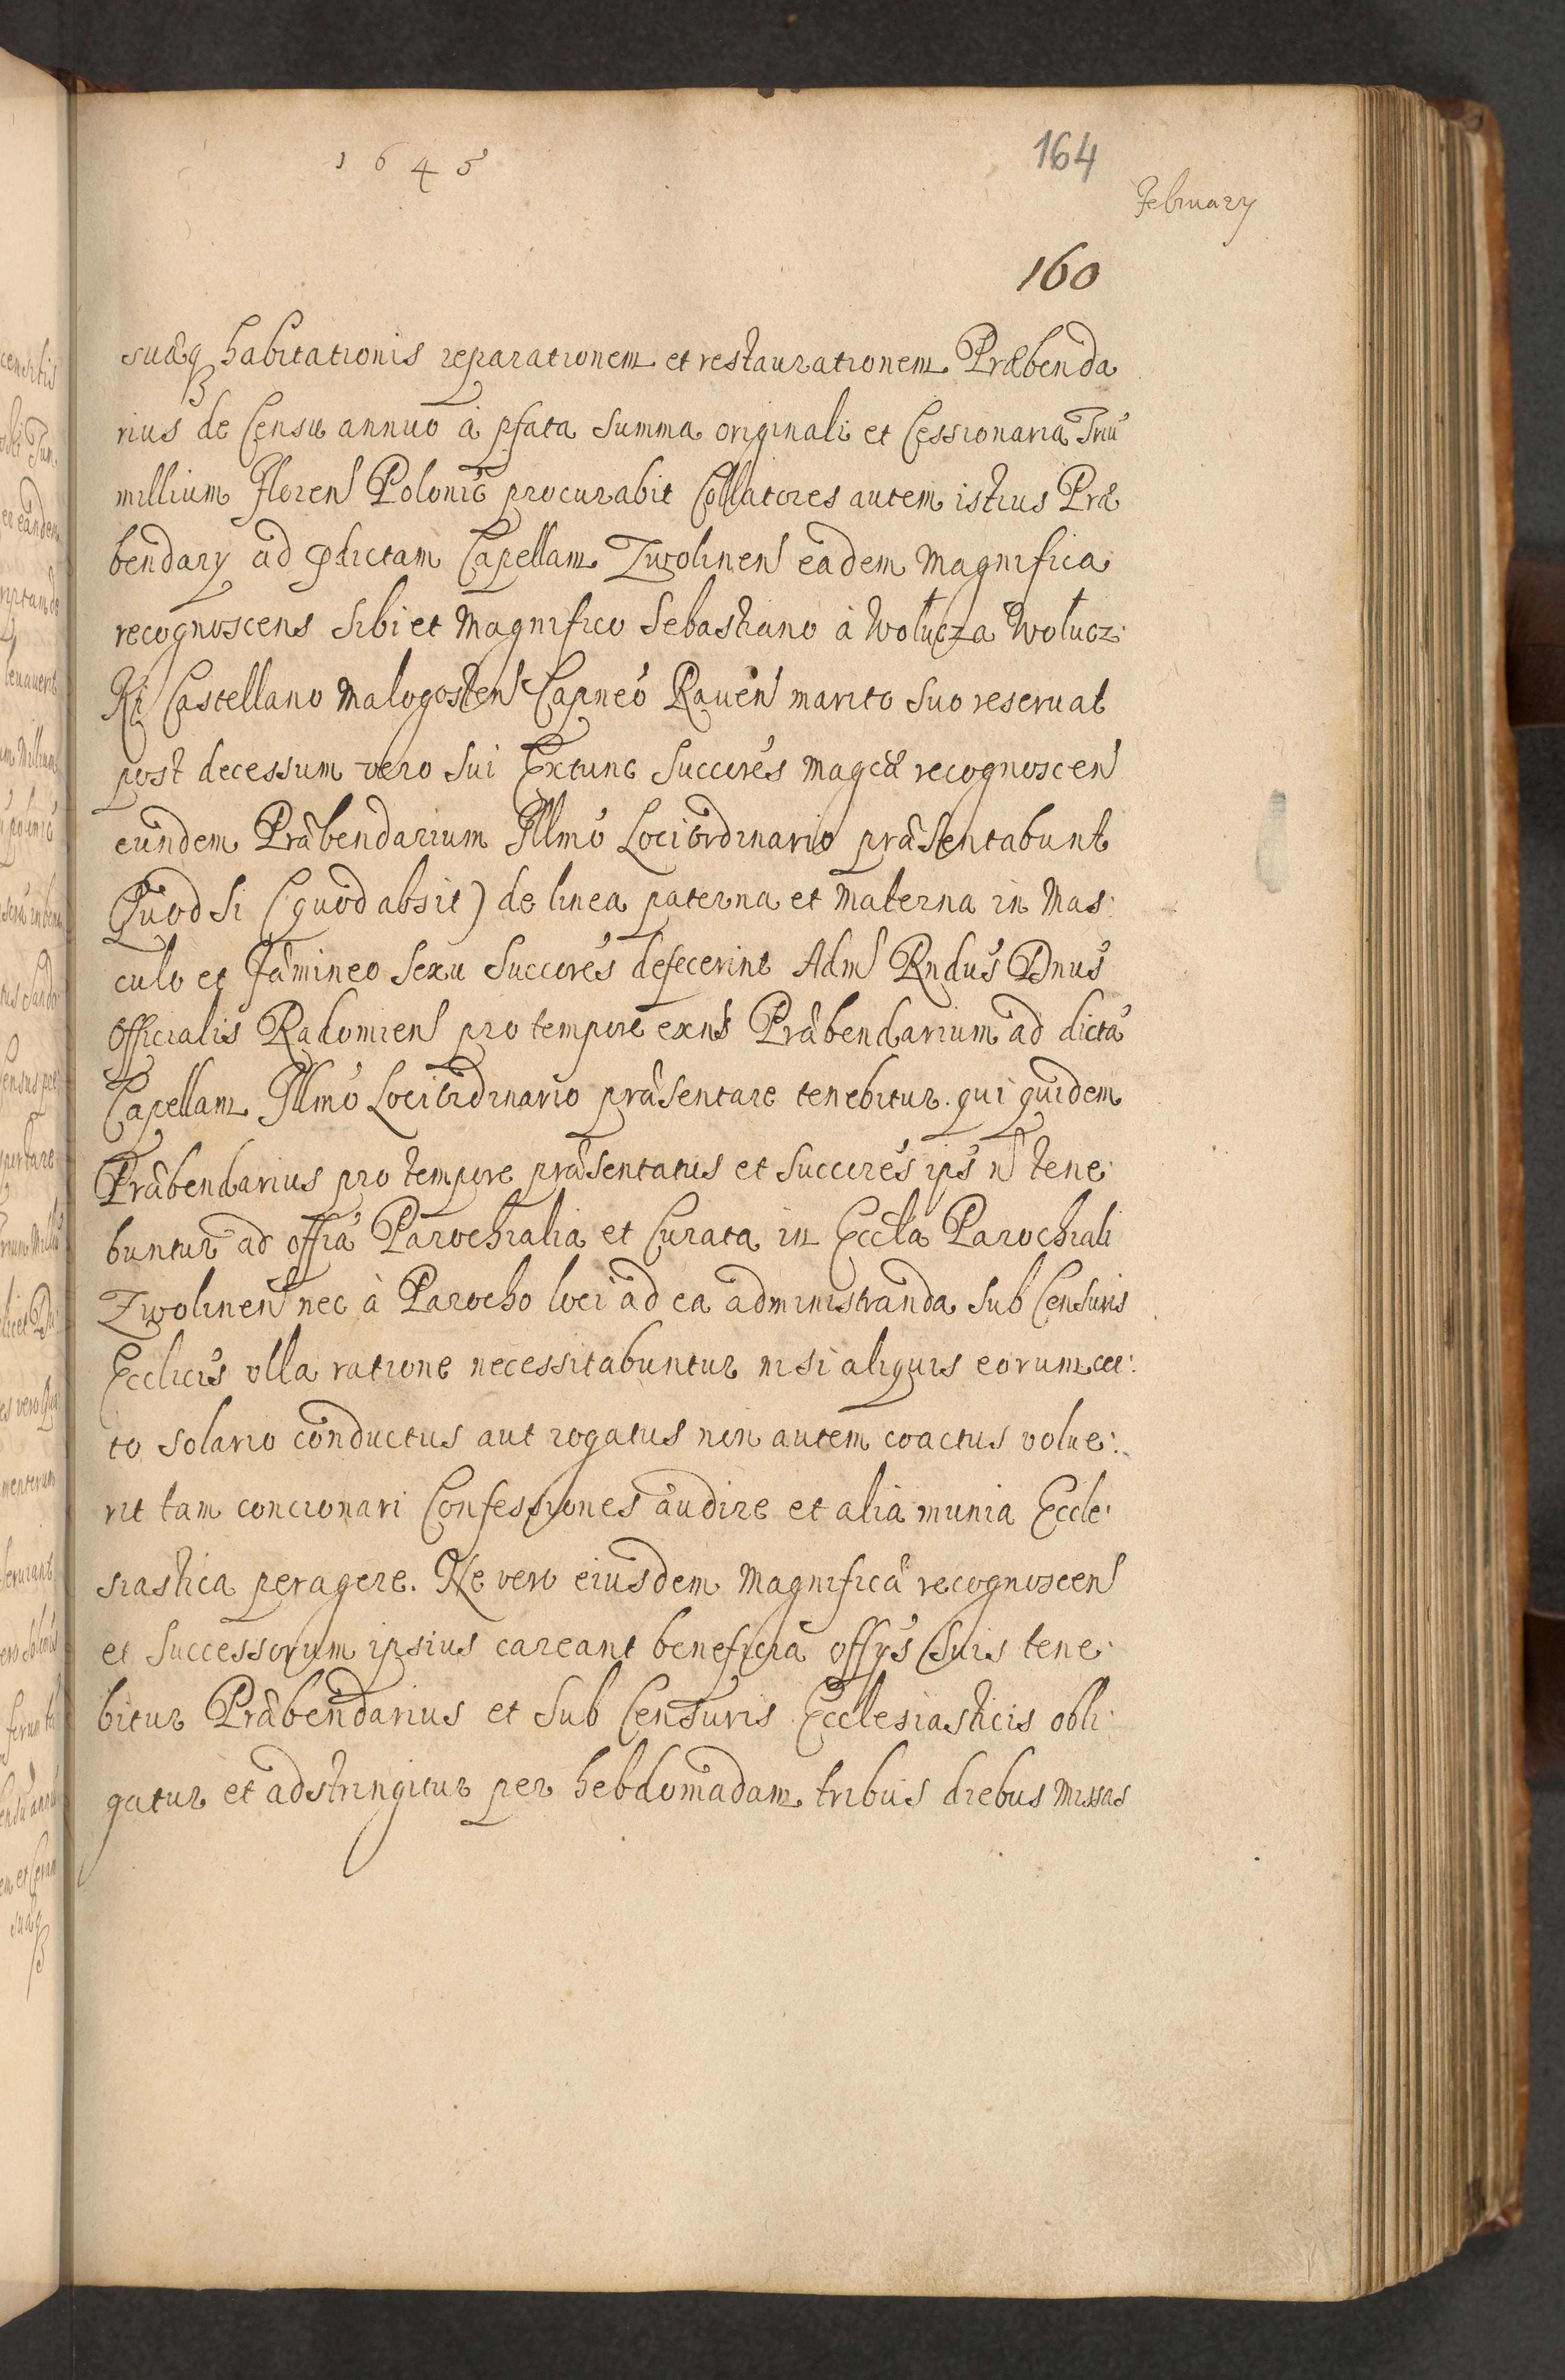 1645
164
February
160
suæq habitationis reparationem et restaurationem Præbenda
rius de Censu annuo à pfata summa originali et Cessionaria Triu
millium Floren Polonic procurabit Collatores autem istius Præ
bendarÿ ad dictam Capellam Zwolinen eadem Magnifica
recognoscens sibi et Magnifico Sebastiano à Wołucza Wołucz:
Ki Castellano Malogosten Capneo Raven marito suo reservat
post decessum vero sui Extunc succores Magcæ recognoscen
eundem Præbendarium Illmo Loci ordinario præsentabunt
Quod si (quod absit) de linea paterna et materna in Mas:
culo et Fæmineo sexu succores defecerint Adm Rndus Dnus
Officialis Radomien pro tempore exns Præbendarium ad dicta
Capellam Illmo Loci ordinario præsentare tenebitur. qui quidem
Præbendarius pro tempore præsentatus et succeres ips n tene:
buntur ad offia Parochialia et Curata in Eccla Parochiali
Zwolinen nec à Parocho loci ad ea administranda sub Censuris
Ecclicis ulla ratione necessitabuntur nisi aliquis eorum cer:
to solario conductus aut rogatus non autem coactus volue:
rit tam concionari Confessiones audire et alia munia Eccle:
siastica peragere. Ne vero eiusdem Magnificæ recognoscen
et Successorum ipsius careant beneficia offÿs suis tene:
bitur Præbendarius et sub Censuris Ecclesiasticis obli:
gatur et adstringitur per hebdomadam tribus diebus Missas